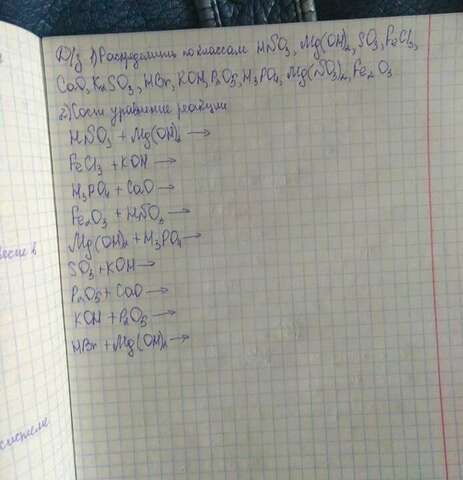 Д/з 1) Распределить по классам HNO3, Mg(OH)2, SO3, FeCl3,
CaO, K2SO3, HBr, KOH, P2O5, H3PO4, Mg(NO3)2, Fe2O3
2) Сост уравнение реакции
HNO3 + Mg(OH)2 →
FeCl3 + KOH →
H3PO4 + CaO →
Fe2O3 + HNO3 →
Mg(OH)2 + H3PO4 →
SO3 + KOH →
P2O5 + CaO →
KOH + P2O5 →
HBr + Mg(OH)2 →